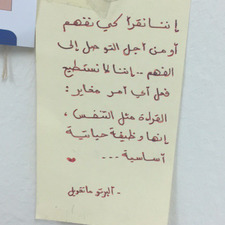 إننا نقرأ كي نفهم
أو من أجل التوصل إلى
الفهم .. إننا لا نستطيع
فعل أي أمر مغاير :
القراءة مثل التنفس ،
إنها وظيفة حياتية
أساسية ...
- ألبرتو مانغويل